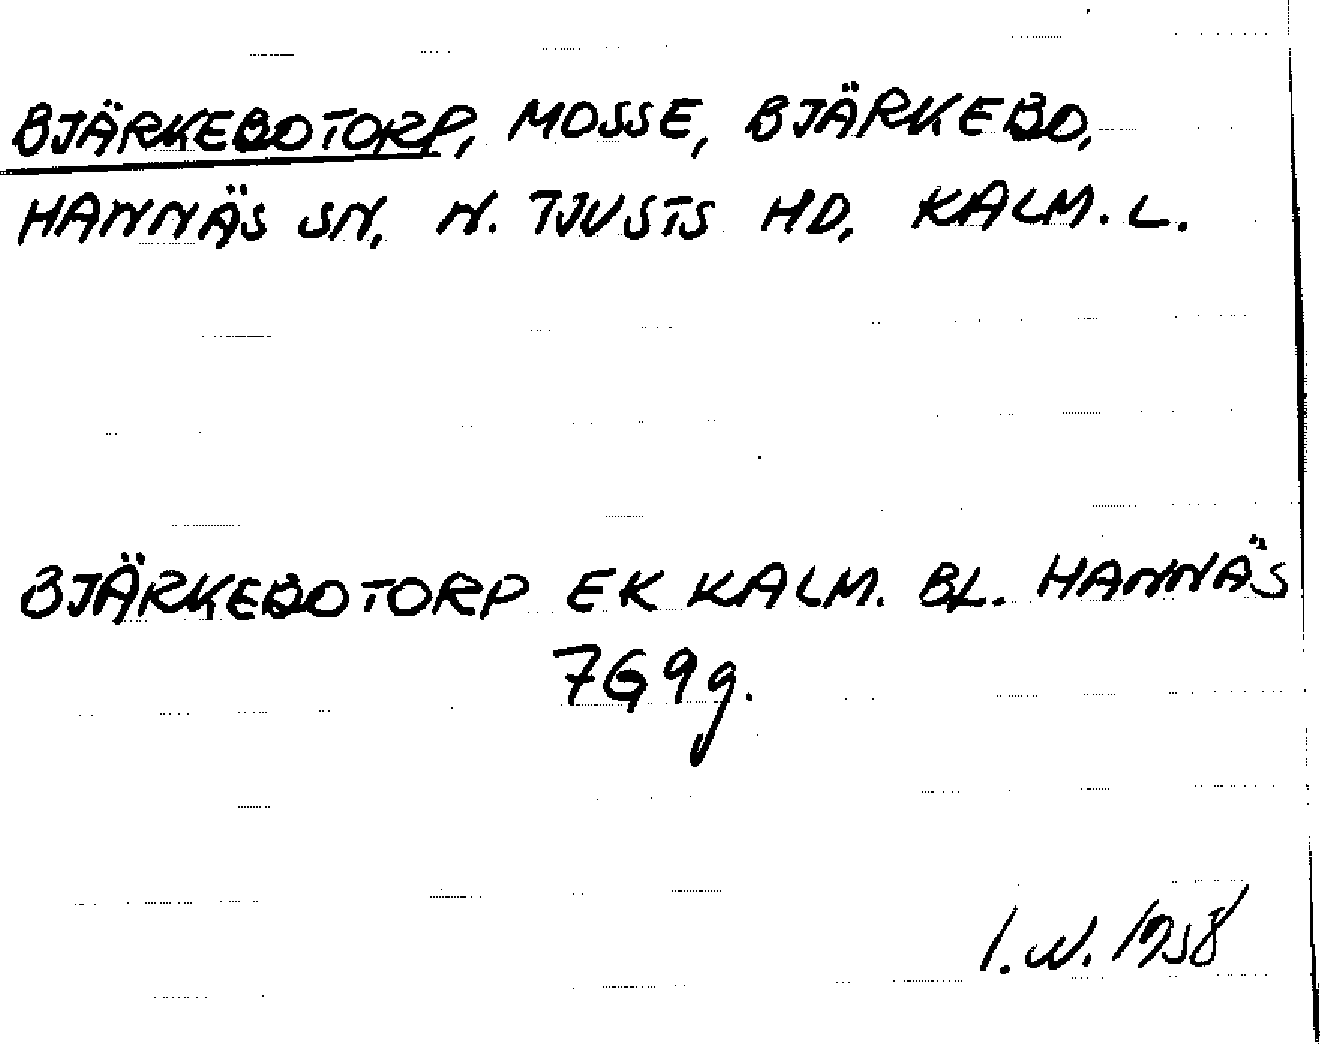 BJÄRKEBOTORP, MOSSE, BJÄRKEBO,
HANNÄS SN, N. TJUSTS HD, KALM. L.
BJÄRKEBOTORP EK KALM. BL. HANNÄS
7G9g.
I. N. 1958